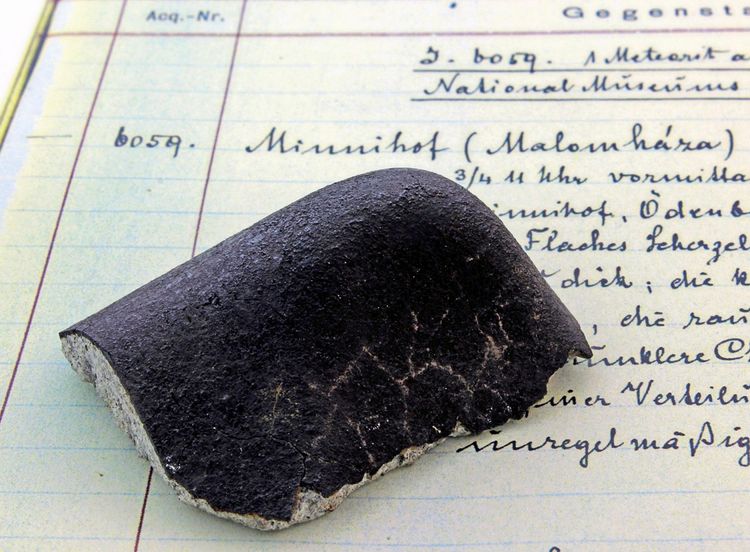 Acq.-Nr. Gegensta
J. 6059. 1 Meteorit a
National Museums
6059. Minnihof (Malomháza)
3/4 11 Uhr vormitta
innihof, Ödenb
Flaches Scherzel
dick; die k
, die rau
unklere C
einer Verteilu
unregelmäßig